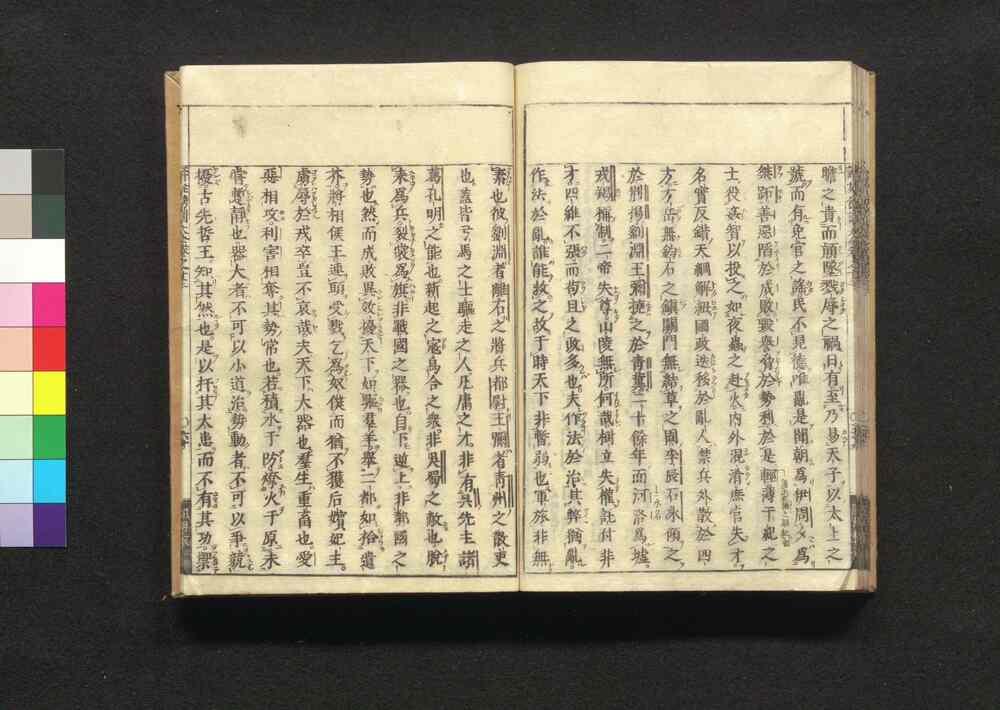 瞻之貴而顛墜戮辱之禍日有至乃易天子以太上之
號而有免官之謠民不見德唯亂是聞朝爲伊周夕爲
桀跖善惡陷於成敗毀譽脅於勢利於是輕薄干紀之
士役姦智以投之如夜蟲之赴火内外混淆庶官失才
名實反錯天綱解紐國政迭移於亂人禁兵外散於四
方方岳無鈞石之鎮關門無結草之固李辰石冰傾之
於荊揚劉淵王彌撓之於青冀二十餘年而河洛爲墟
戎羯稱制二帝失尊山陵無所何哉樹立失權託付非
才四維不張而苟且之政多也夫作法於治其弊猶亂
作法於亂誰能救之故于時天下非暫弱也軍旅非無
素也彼劉淵者離石之將兵都尉王彌者青州之散吏
也蓋皆弓馬之士驅走之人凡庸之才非有吳先主諸
葛孔明之能也新起之寇烏合之衆非吳蜀之敵也脫
耒爲兵裂裳爲旗非戰國之器也自下逆上非鄰國之
勢也然而成敗異效擾天下如驅羣羊舉二都如拾遺
芥將相侯王連頭受戮乞爲奴僕而猶不獲后嬪妃主
虜辱於戎卒豈不哀哉夫天下大器也羣生重畜也愛
惡相攻利害相奪其勢常也若積水于防燎火于原未
嘗暫靜也器大者不可以小道治勢動者不可以爭競
擾古先哲王知其然也是以扞其大患而不有其功禦